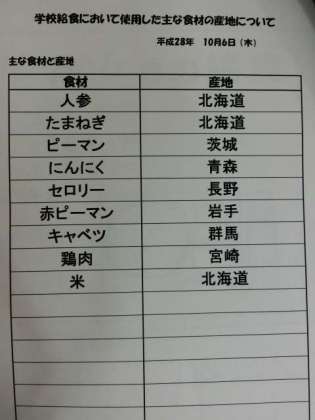 学校給食において使用した主な食材の産地について
平成28年 10月6日（木）
主な食材と産地
食材 産地
人参 北海道
たまねぎ 北海道
ピーマン 茨城
にんにく 青森
セロリー 長野
赤ピーマン 岩手
キャベツ 群馬
鶏肉 宮崎
米 北海道